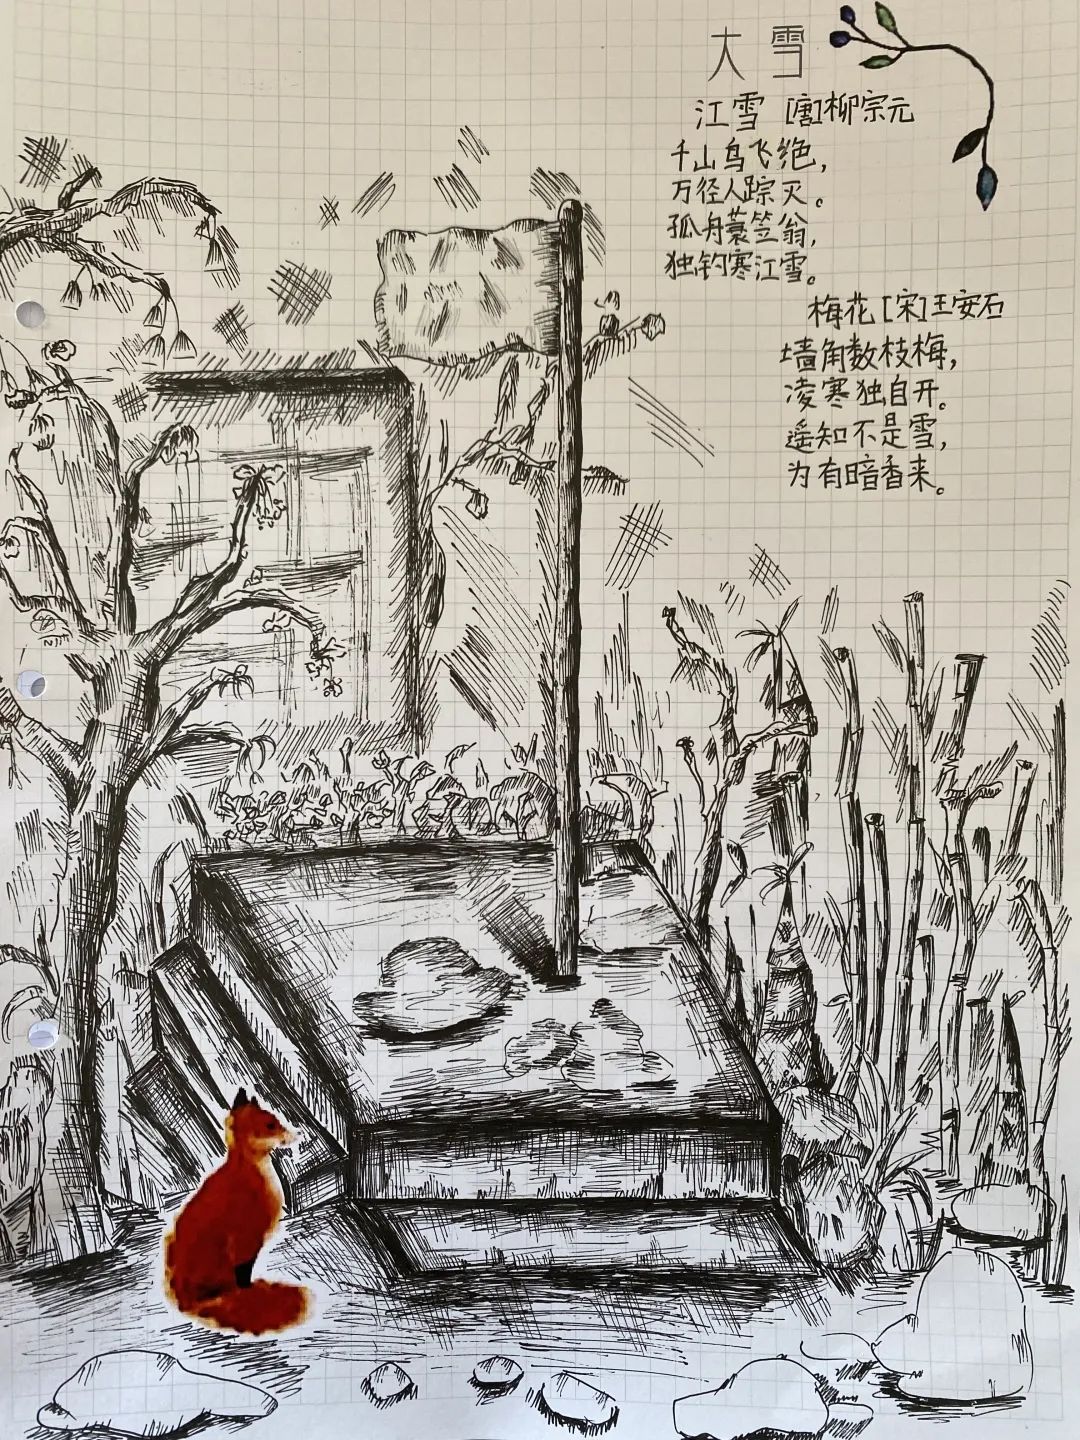 大雪
江雪 [唐]柳宗元
千山鸟飞绝，
万径人踪灭。
孤舟蓑笠翁，
独钓寒江雪。
梅花[宋]王安石
墙角数枝梅，
凌寒独自开。
遥知不是雪，
为有暗香来。